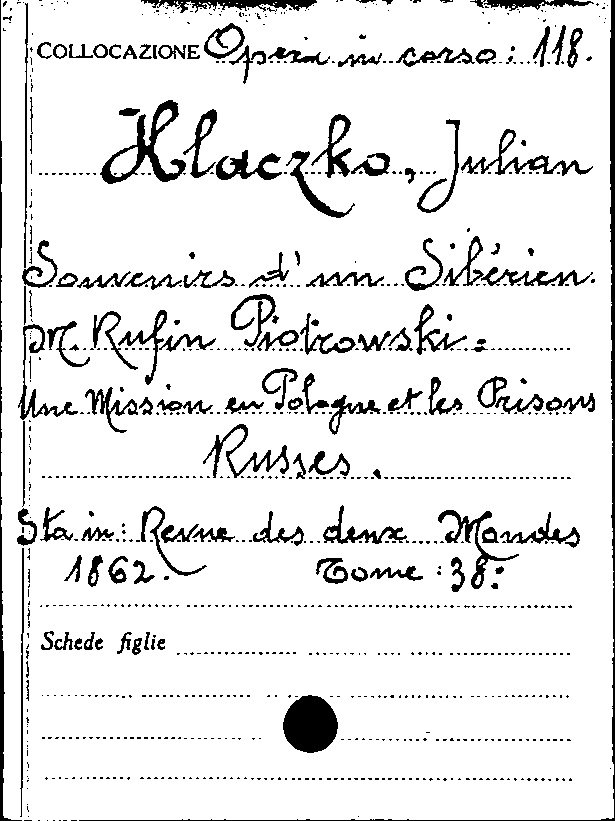 COLLOCAZIONE Opera in corso: 118.
Klaczko, Julian
Souvenirs d'un Sibérien.
M. Rufin Piotrowski.=
Une Mission en Pologne et les Prisons
Russes.
Sta in: Revue des deux Mondes
1862. Tome: 38:
Schede figlie